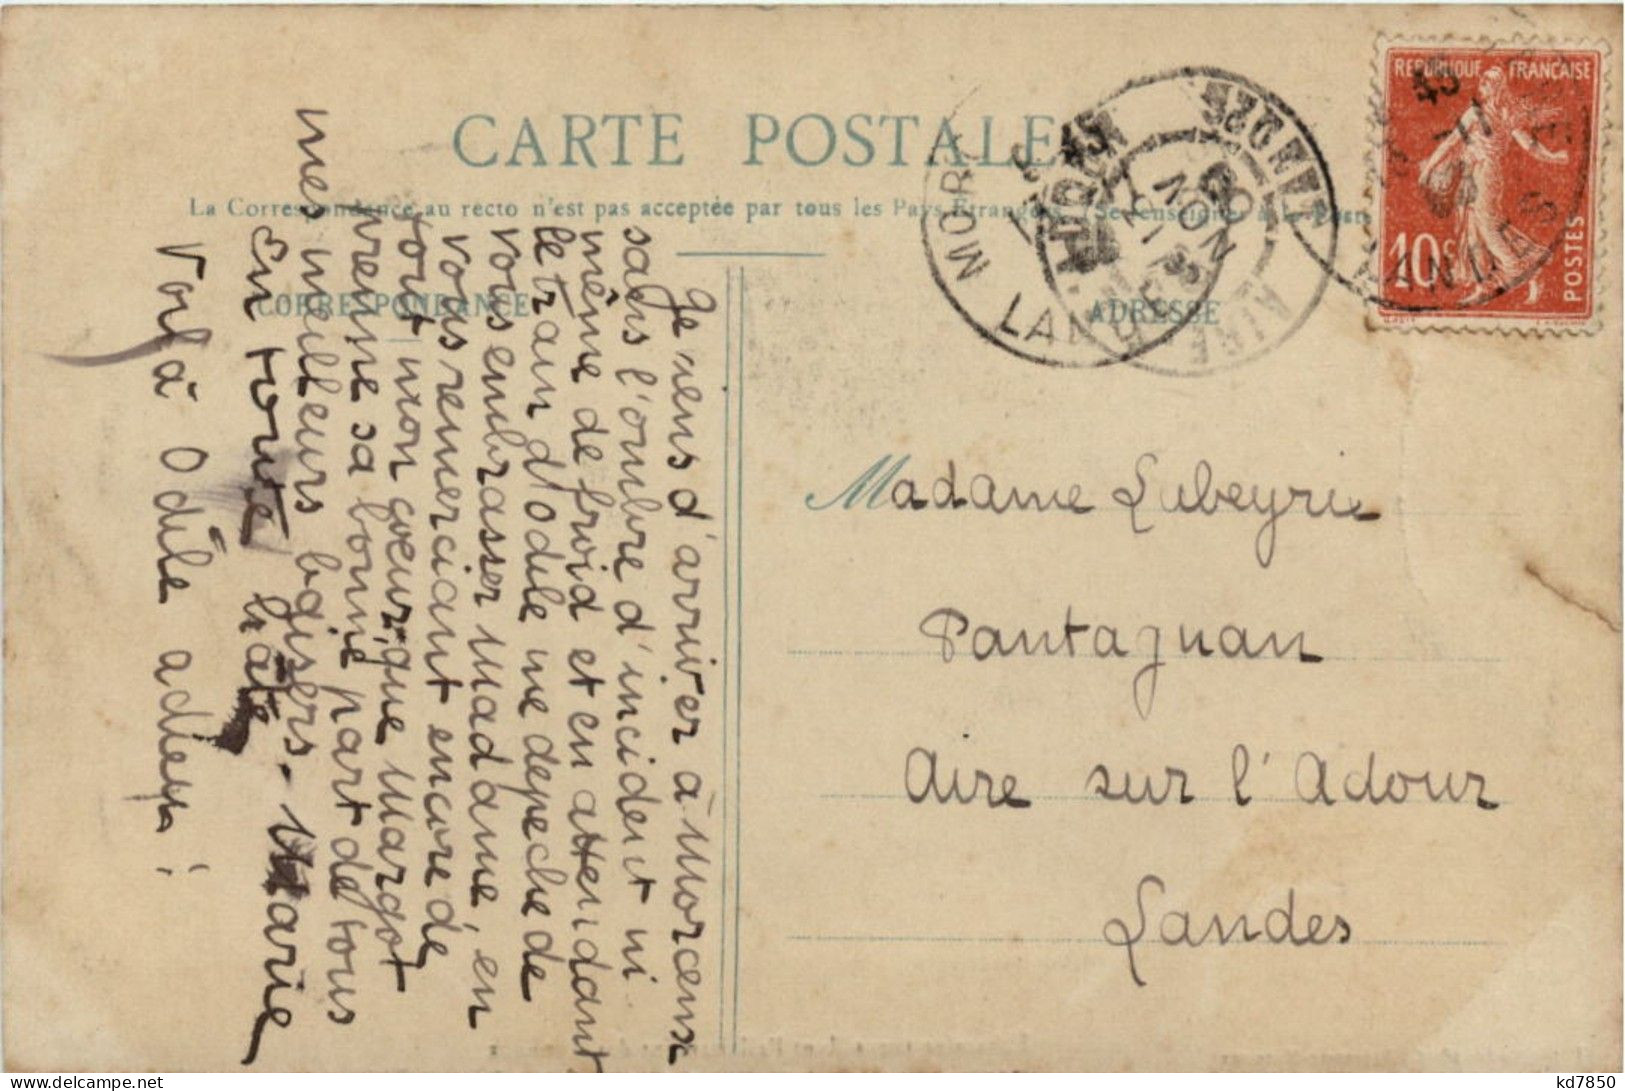 CARTE POSTALE
La Correspondance au recto n'est pas acceptée par tous les Pays Etrangers (Se renseigner à la Poste
CORRESPONDANCE
ADRESSE
REPUBLIQUE FRANCAISE
10c
POSTES
LANDES
MORC
LANDES
AIRE
Je viens d'arriver à Morcenx
sans l'ombre d'incident ni
même de froid et en attendant
le train d'Odile me depeche de
vous embrasser Madame, en
vous remerciant encore de
tout mon coeur, que Margot
prenne sa bonne part de tous
mes meilleurs baisers. Marie
En toute hâte
Voilà Odile adieu!
Madame Labeyrie
Pantagnan
Aire sur l'Adour
Landes
kd7850